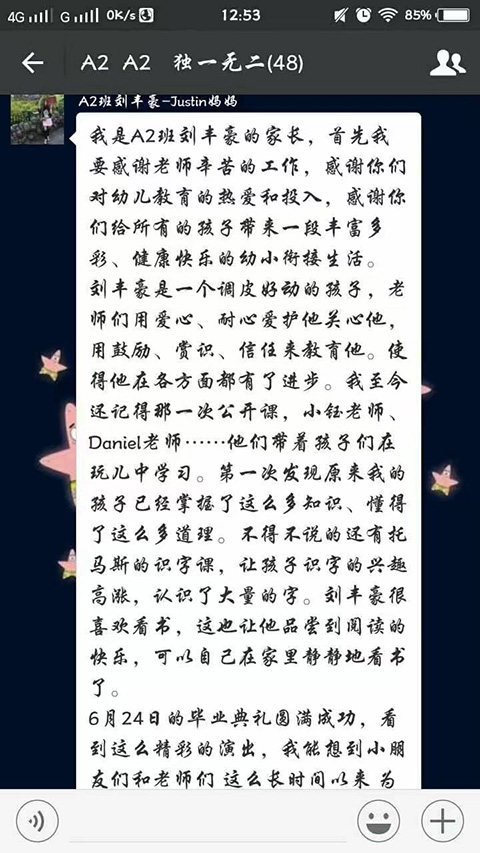 4G G 0K/s 12:53 85%
A2 A2 独一无二(48)
A2班刘丰豪-Justin妈妈
我是A2班刘丰豪的家长，首先我
要感谢老师辛苦的工作，感谢你们
对幼儿教育的热爱和投入，感谢你
们给所有的孩子带来一段丰富多
彩、健康快乐的幼小衔接生活。
刘丰豪是一个调皮好动的孩子，老
师们用爱心、耐心爱护他关心他，
用鼓励、赏识、信任来教育他。使
得他在各方面都有了进步。我至今
还记得那一次公开课，小钰老师、
Daniel老师……他们带着孩子们在
玩儿中学习。第一次发现原来我的
孩子已经掌握了这么多知识、懂得
了这么多道理。不得不说的还有托
马斯的识字课，让孩子识字的兴趣
高涨，认识了大量的字。刘丰豪很
喜欢看书，这也让他品尝到阅读的
快乐，可以自己在家里静静地看书
了。
6月24日的毕业典礼圆满成功，看
到这么精彩的演出，我能想到小朋
友们和老师们 这么长时间以来 为